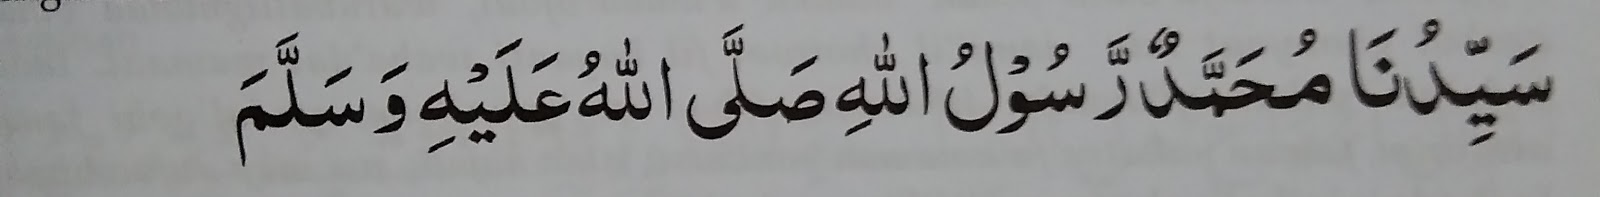 سَيِّدُنَا مُحَمَّدٌ رَّسُوْلُ اللّٰهِ صَلَّى اللّٰهُ عَلَيْهِ وَسَلَّمَ